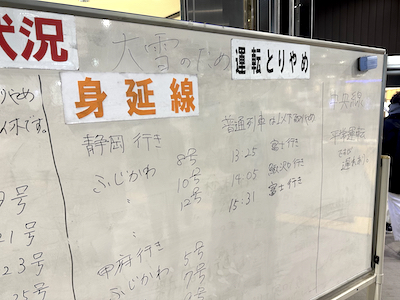 状況
大雪のため
運転とりやめ
身延線
りやめ
休です。
9号
21号
23号
25号
静岡 行き
ふじかわ 8号
〃 10号
〃 12号
甲府 行き
ふじかわ 5号
7号
普通列車は以下
13:25 富士行き
14:05 鰍沢行き
15:31 富士行き
中央線
平常運転
ですが
遅れあり